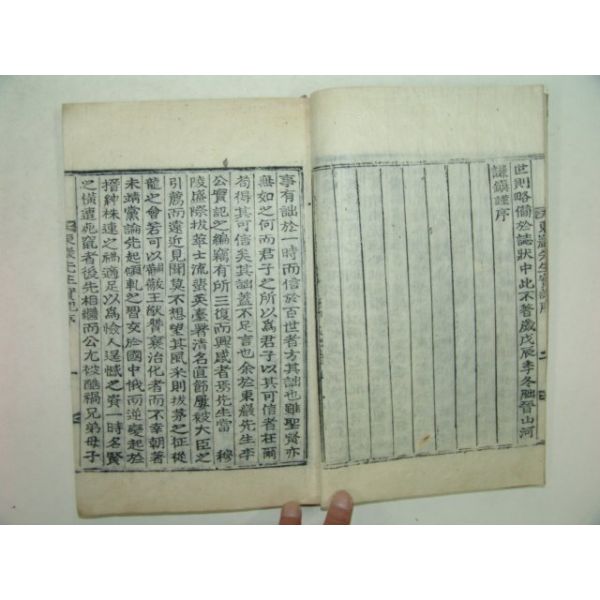 東巖先生實記序
世則略備於誌狀中此不著歲戊辰季冬朏晉山河
謙鎭謹序
事有詘於一時而信於百世者方其詘也雖聖賢亦
無如之何而君子之所以爲君子以其可信者在爾
苟得其可信矣其詘蓋不足言也余於東巖先生李
公實記之編竊有所三復而興感者焉先生當 穆
陵盛際拔萃士流蜚英臺署淸名直節屢被大臣之
引薦而遠近見聞莫不想望其風采則拔茅之征從
龍之會若可以黼黻王猷贊襄治化者而不幸朝著
未靖黨論先起傾軋之習交於國中俄而逆變起於
搢紳株連之禍適足以爲憸人逞憾之資一時名賢
之橫遭竄者後先相繼而公尤被醜禍兄弟母子
東巖先生實記序 一